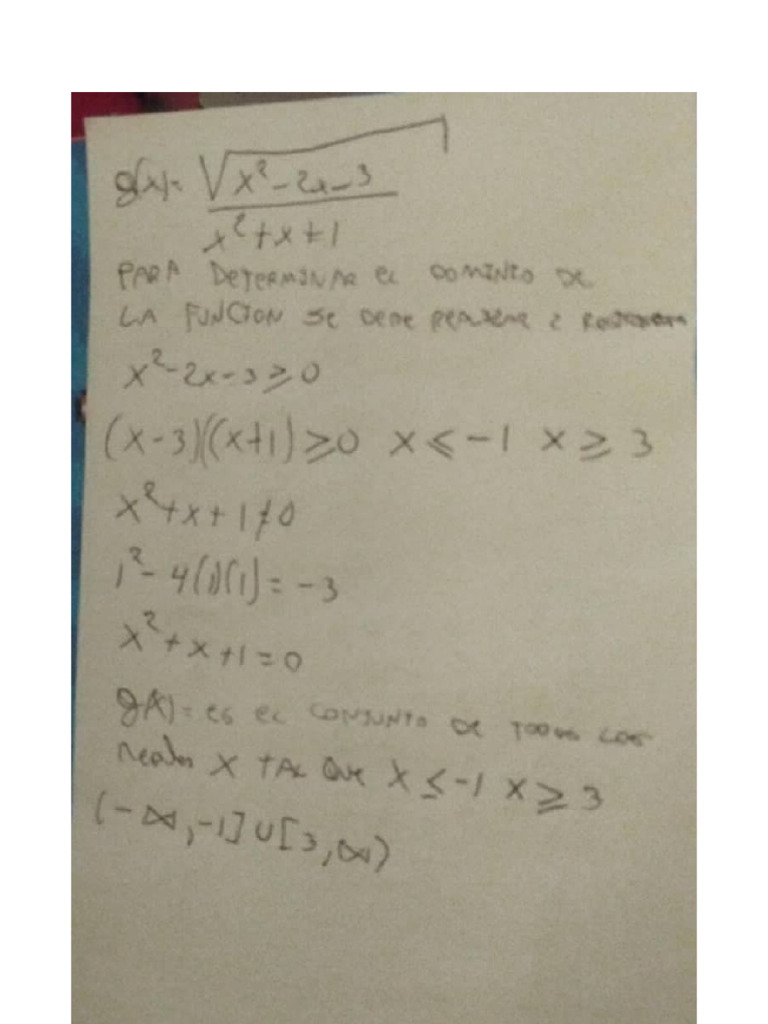 g(x)= √x²-2x-3
x²+x+1
PARA DETERMINAR EL DOMINIO DE
LA FUNCION SE DEBE 2
x²-2x-3≥0
(x-3)((x+1)≥0 x≤-1 x≥3
x²+x+1≠0
1²-4(1)(1)=-3
x²+x+1=0
g(x)= es EL CONJUNTO DE TODOS LOS
Reales X TAL QUE X≤-1 X≥3
(-∞,-1]U[3,∞)